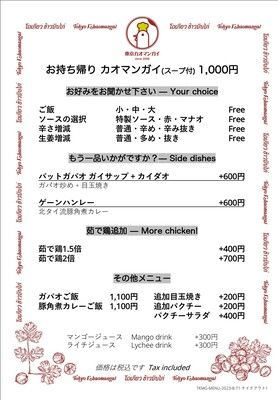 โตเกียว ข้าวมันไก่
Tokyo Kaomangai
東京カオマンガイ
お持ち帰り カオマンガイ(スープ付) 1,000円
お好みをお聞かせ下さい — Your choice
ご飯 小・中・大 Free
ソースの選択 特製ソース・赤・マナオ Free
辛さ増減 普通・辛め・辛み抜き Free
生姜増減 普通・多め・抜き Free
もう一品いかがですか?— Side dishes
パットガパオ ガイサップ + カイダオ +600円
ガパオ炒め + 目玉焼き
ゲーンハンレー +600円
北タイ流豚角煮カレー
茹で鶏追加 — More chicken!
茹で鶏1.5倍 +400円
茹で鶏2倍 +700円
その他メニュー
ガパオご飯 1,100円 追加目玉焼き +200円
豚角煮カレーご飯 1,100円 追加パクチー +200円
パクチーサラダ +400円
マンゴージュース Mango drink +300円
ライチジュース Lychee drink +300円
価格は税込です Tax included